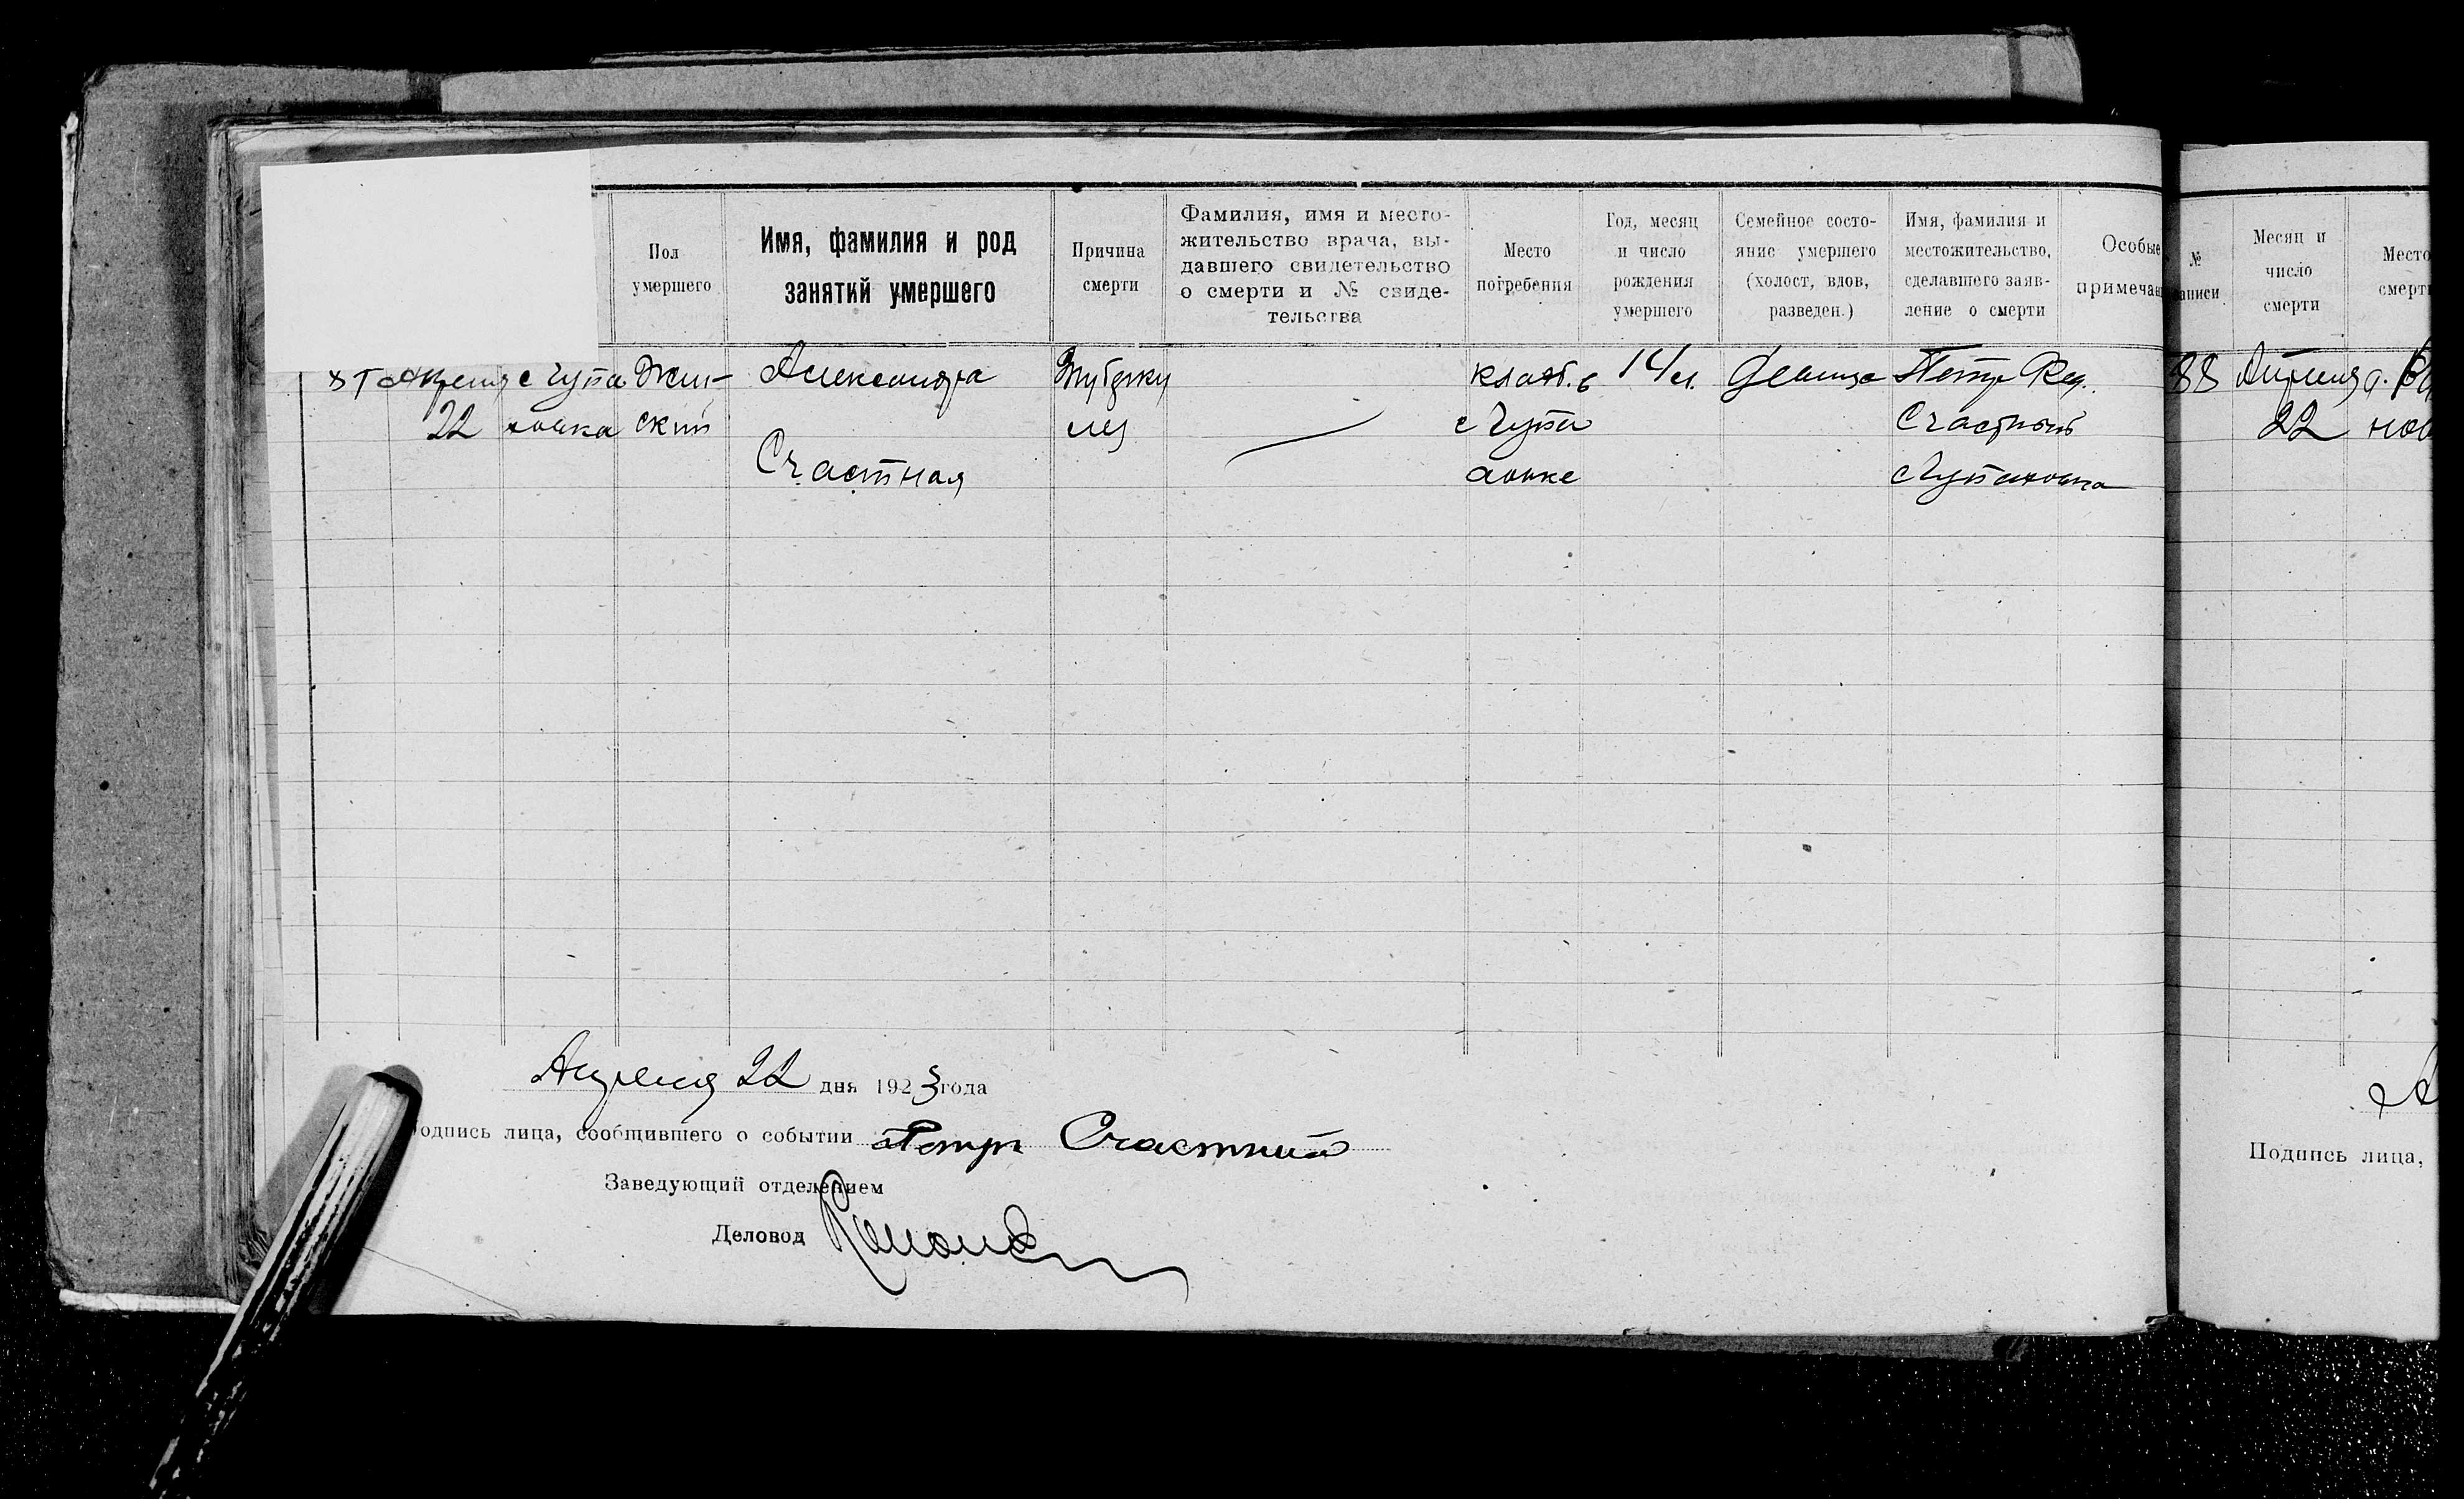 Пол
умершего
Имя, фамилия и род
занятий умершего
Причина
смерти
Фамилия, имя и место-
жительство врача, вы-
давшего свидетельство
о смерти и № свиде-
тельства
Место
погребения
Год, месяц
и число
рождения
умершего
Семейное состо-
яние умершего
(холост, вдов,
разведен.)
Имя, фамилия и
местожительство,
сделавшего заяв-
ление о смерти
Особые
примечан
87 Апреля с Чупа Жен- Александра Туберку кладб. в 14 л. Девица Петр
22 ховка ский лез с Чупа Счастный
Счастная ховке с Чупаховка
Апреля 22 дня 1923 года
одпись лица, сообщившего о событии Петр Счастний
Заведующий отделением
Деловод
№
записи
Месяц и
число
смерти
Место
смерт
88 Апреля
22 нов
Подпись лица,